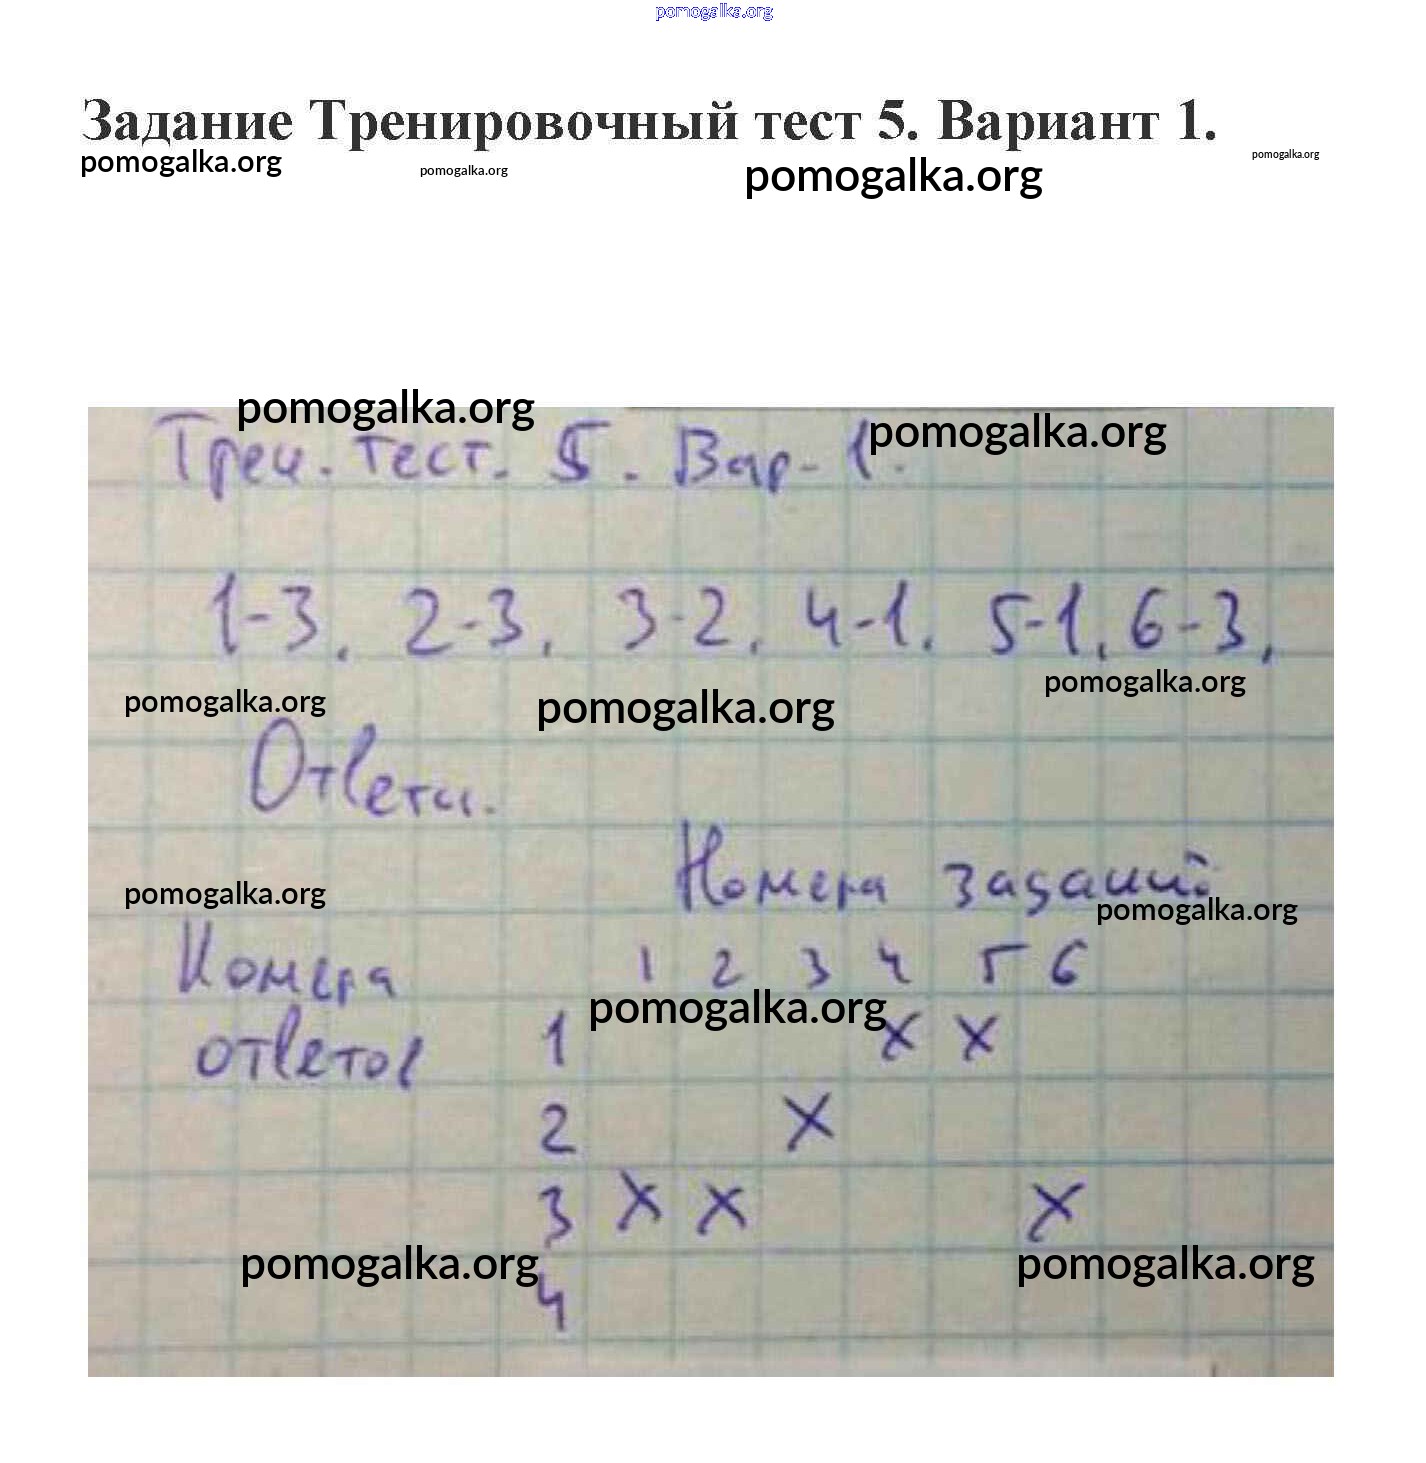 pomogalka.org
Задание Тренировочный тест 5. Вариант 1.
pomogalka.org pomogalka.org pomogalka.org pomogalka.org
pomogalka.org pomogalka.org
Трен. тест. 5. Вар-1.
1-3, 2-3, 3-2, 4-1, 5-1, 6-3,
pomogalka.org pomogalka.org pomogalka.org
Ответы.
Номера заданий
pomogalka.org pomogalka.org
Номера 1 2 3 4 5 6
pomogalka.org
ответов 1 х х
2 х
3 х х х
pomogalka.org pomogalka.org
4